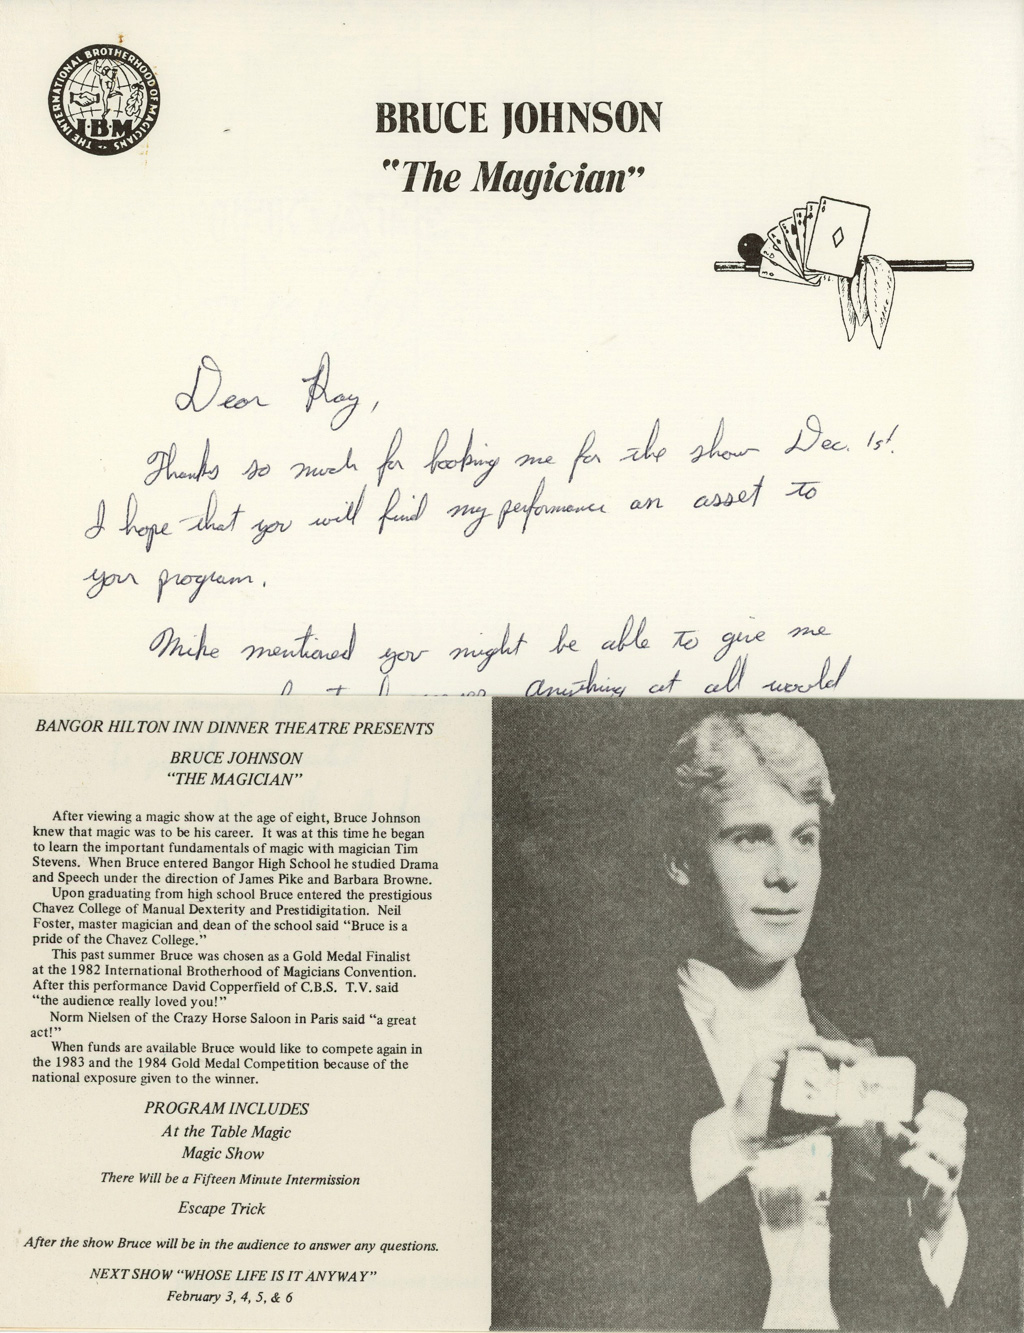 THE INTERNATIONAL BROTHERHOOD OF MAGICIANS
I·B·M
BRUCE JOHNSON
"The Magician"
Dear Ray,
Thanks so much for booking me for the show Dec. 1st!
I hope that you will find my performance an asset to
your program.
Mike mentioned you might be able to give me
anything at all would
BANGOR HILTON INN DINNER THEATRE PRESENTS
BRUCE JOHNSON
"THE MAGICIAN"
After viewing a magic show at the age of eight, Bruce Johnson
knew that magic was to be his career. It was at this time he began
to learn the important fundamentals of magic with magician Tim
Stevens. When Bruce entered Bangor High School he studied Drama
and Speech under the direction of James Pike and Barbara Browne.
Upon graduating from high school Bruce entered the prestigious
Chavez College of Manual Dexterity and Prestidigitation. Neil
Foster, master magician and dean of the school said "Bruce is a
pride of the Chavez College."
This past summer Bruce was chosen as a Gold Medal Finalist
at the 1982 International Brotherhood of Magicians Convention.
After this performance David Copperfield of C.B.S. T.V. said
"the audience really loved you!"
Norm Nielsen of the Crazy Horse Saloon in Paris said "a great
act!"
When funds are available Bruce would like to compete again in
the 1983 and the 1984 Gold Medal Competition because of the
national exposure given to the winner.
PROGRAM INCLUDES
At the Table Magic
Magic Show
There Will be a Fifteen Minute Intermission
Escape Trick
After the show Bruce will be in the audience to answer any questions.
NEXT SHOW "WHOSE LIFE IS IT ANYWAY"
February 3, 4, 5, & 6